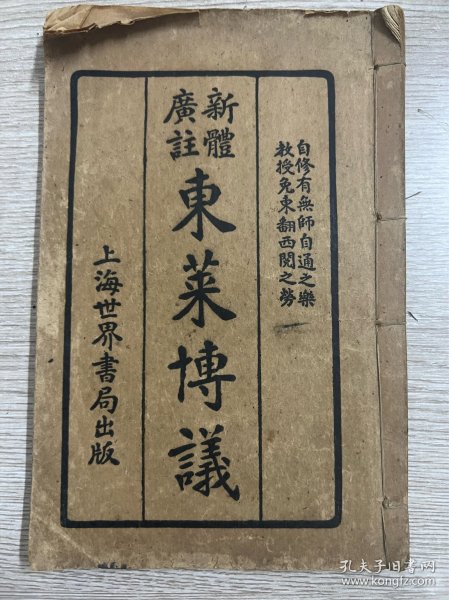 自修有無師自通之樂
教授免東翻西閱之勞
新體
廣註
東萊博議
上海世界書局出版
孔夫子旧书网
www.kongfz.com